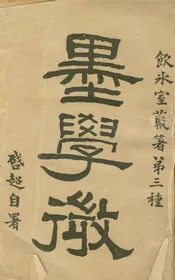 飲氷室叢著第三種
墨學微
啓超自署